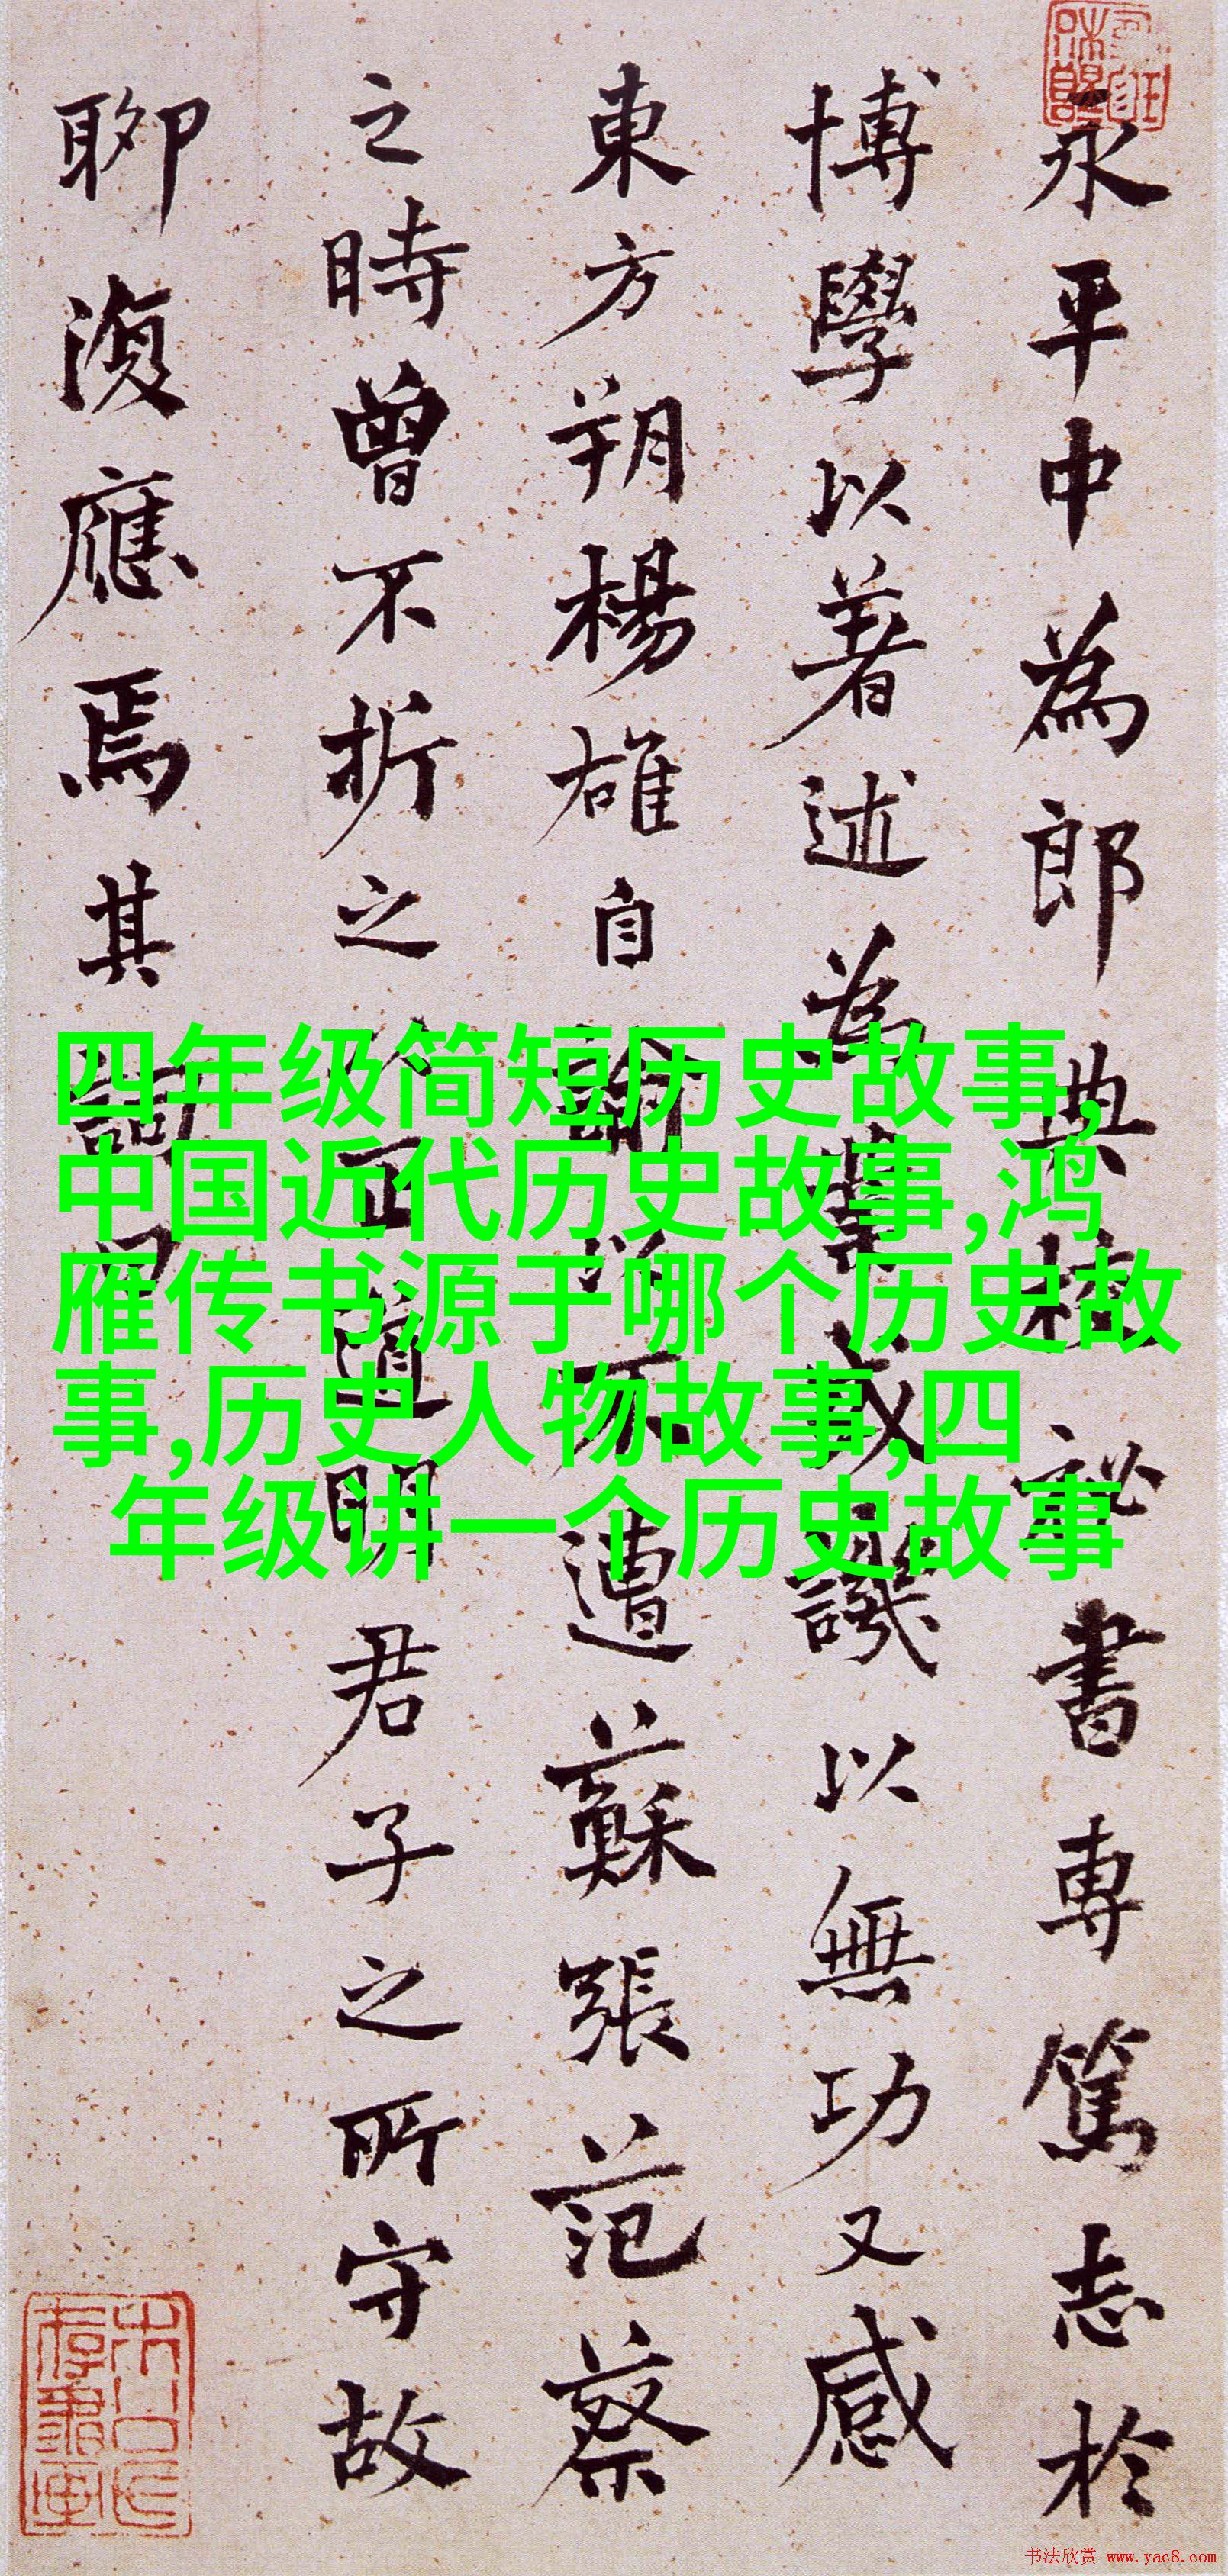 永平中為郎典校祕書專篤志於
博學以著述為業或譏以無功又感
東方朔楊雄自諭以不遭蘇張范蔡
之時曾不折之以正道明君子之所守故
聊復應焉其詞曰
四年级简短历史故事,
中国近代历史故事,鸿
雁传书源于哪个历史故
事,历史人物故事,四
年级讲一个历史故事
书法欣赏 www.yac8.com